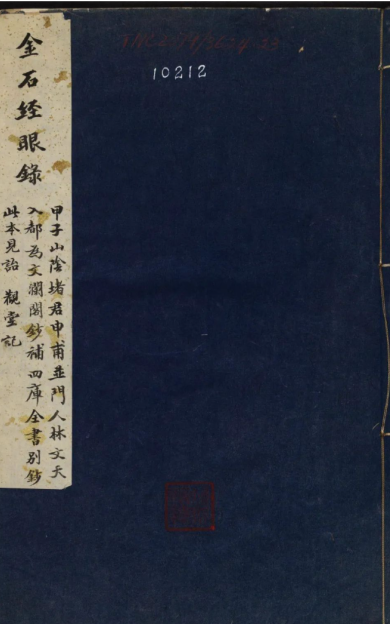 金石經眼錄
甲子山陰堵君申甫並門人林文天
入都為文瀾閣鈔補四庫全書別鈔
此本見詒 觀堂記
10212